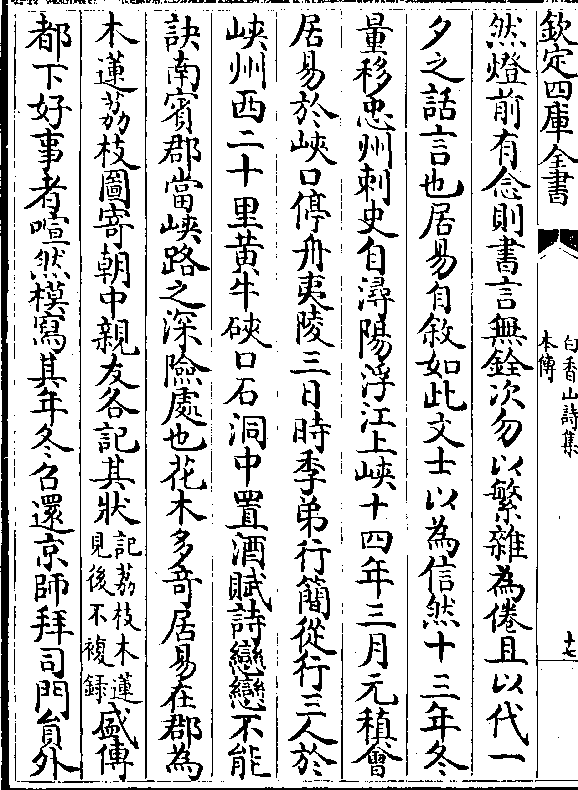 欽定四庫全書
白香山詩集
本傳
十七
然燈前有念則書言無銓次勿以繁雜為倦且以代一
夕之話言也居易自敘如此文士以為信然十三年冬
量移忠州刺史自潯陽浮江上峽十四年三月元稹會
居易於峽口停舟夷陵三日時季弟行簡從行三人於
峽州西二十里黃牛硤口石洞中置酒賦詩戀戀不能
訣南賓郡當峽路之深險處也花木多奇居易在郡為
木蓮荔枝圖寄朝中親友各記其狀記荔枝木蓮見後不複録盛傳
都下好事者喧然模寫其年冬召還京師拜司門員外